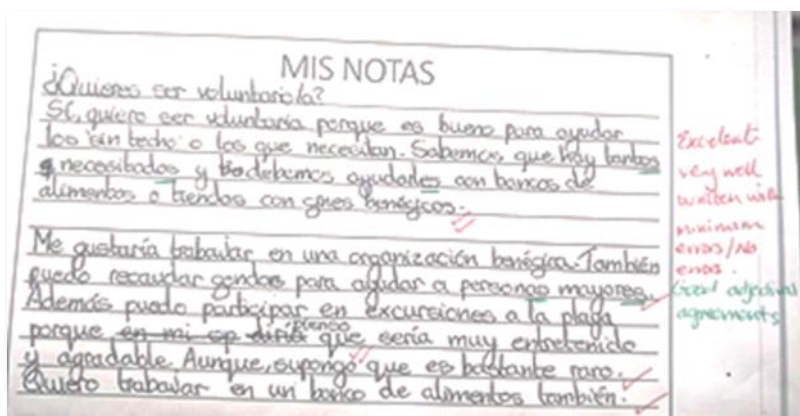 MIS NOTAS
¿Quieres ser voluntario/a?
Sí, quiero ser voluntaria porque es bueno para ayudar
los sin techo o los que necesitan. Sabemos, que hay tantos
necesitados y debemos ayudarles con bancos de
alimentos o tiendas con fines benéficos.
Me gustaría trabajar en una organización benéfica. También
puedo recaudar fondos para ayudar a personas mayores.
Además puedo participar en excursiones a la playa
porque en mi pienso que sería muy entretenido
y agradable. Aunque, supongo que es bastante raro.
Quiero trabajar en un banco de alimentos también.
Excellent
very well
written with
minimum
errors/No
errors.
Good adjectival
agreements